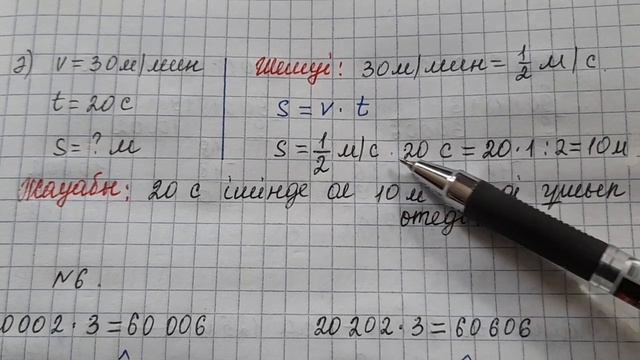 ә) v = 30 м/мин Шешуі: 30 м/мин = 1/2 м/с
t = 20 с s = v · t
s = ? м s = 1/2 м/с · 20 с = 20 · 1 : 2 = 10 м
Жауабы: 20 с ішінде ол 10 м ұшып
өтеді
N6.
0002 · 3 = 60 006 20 202 · 3 = 60 606